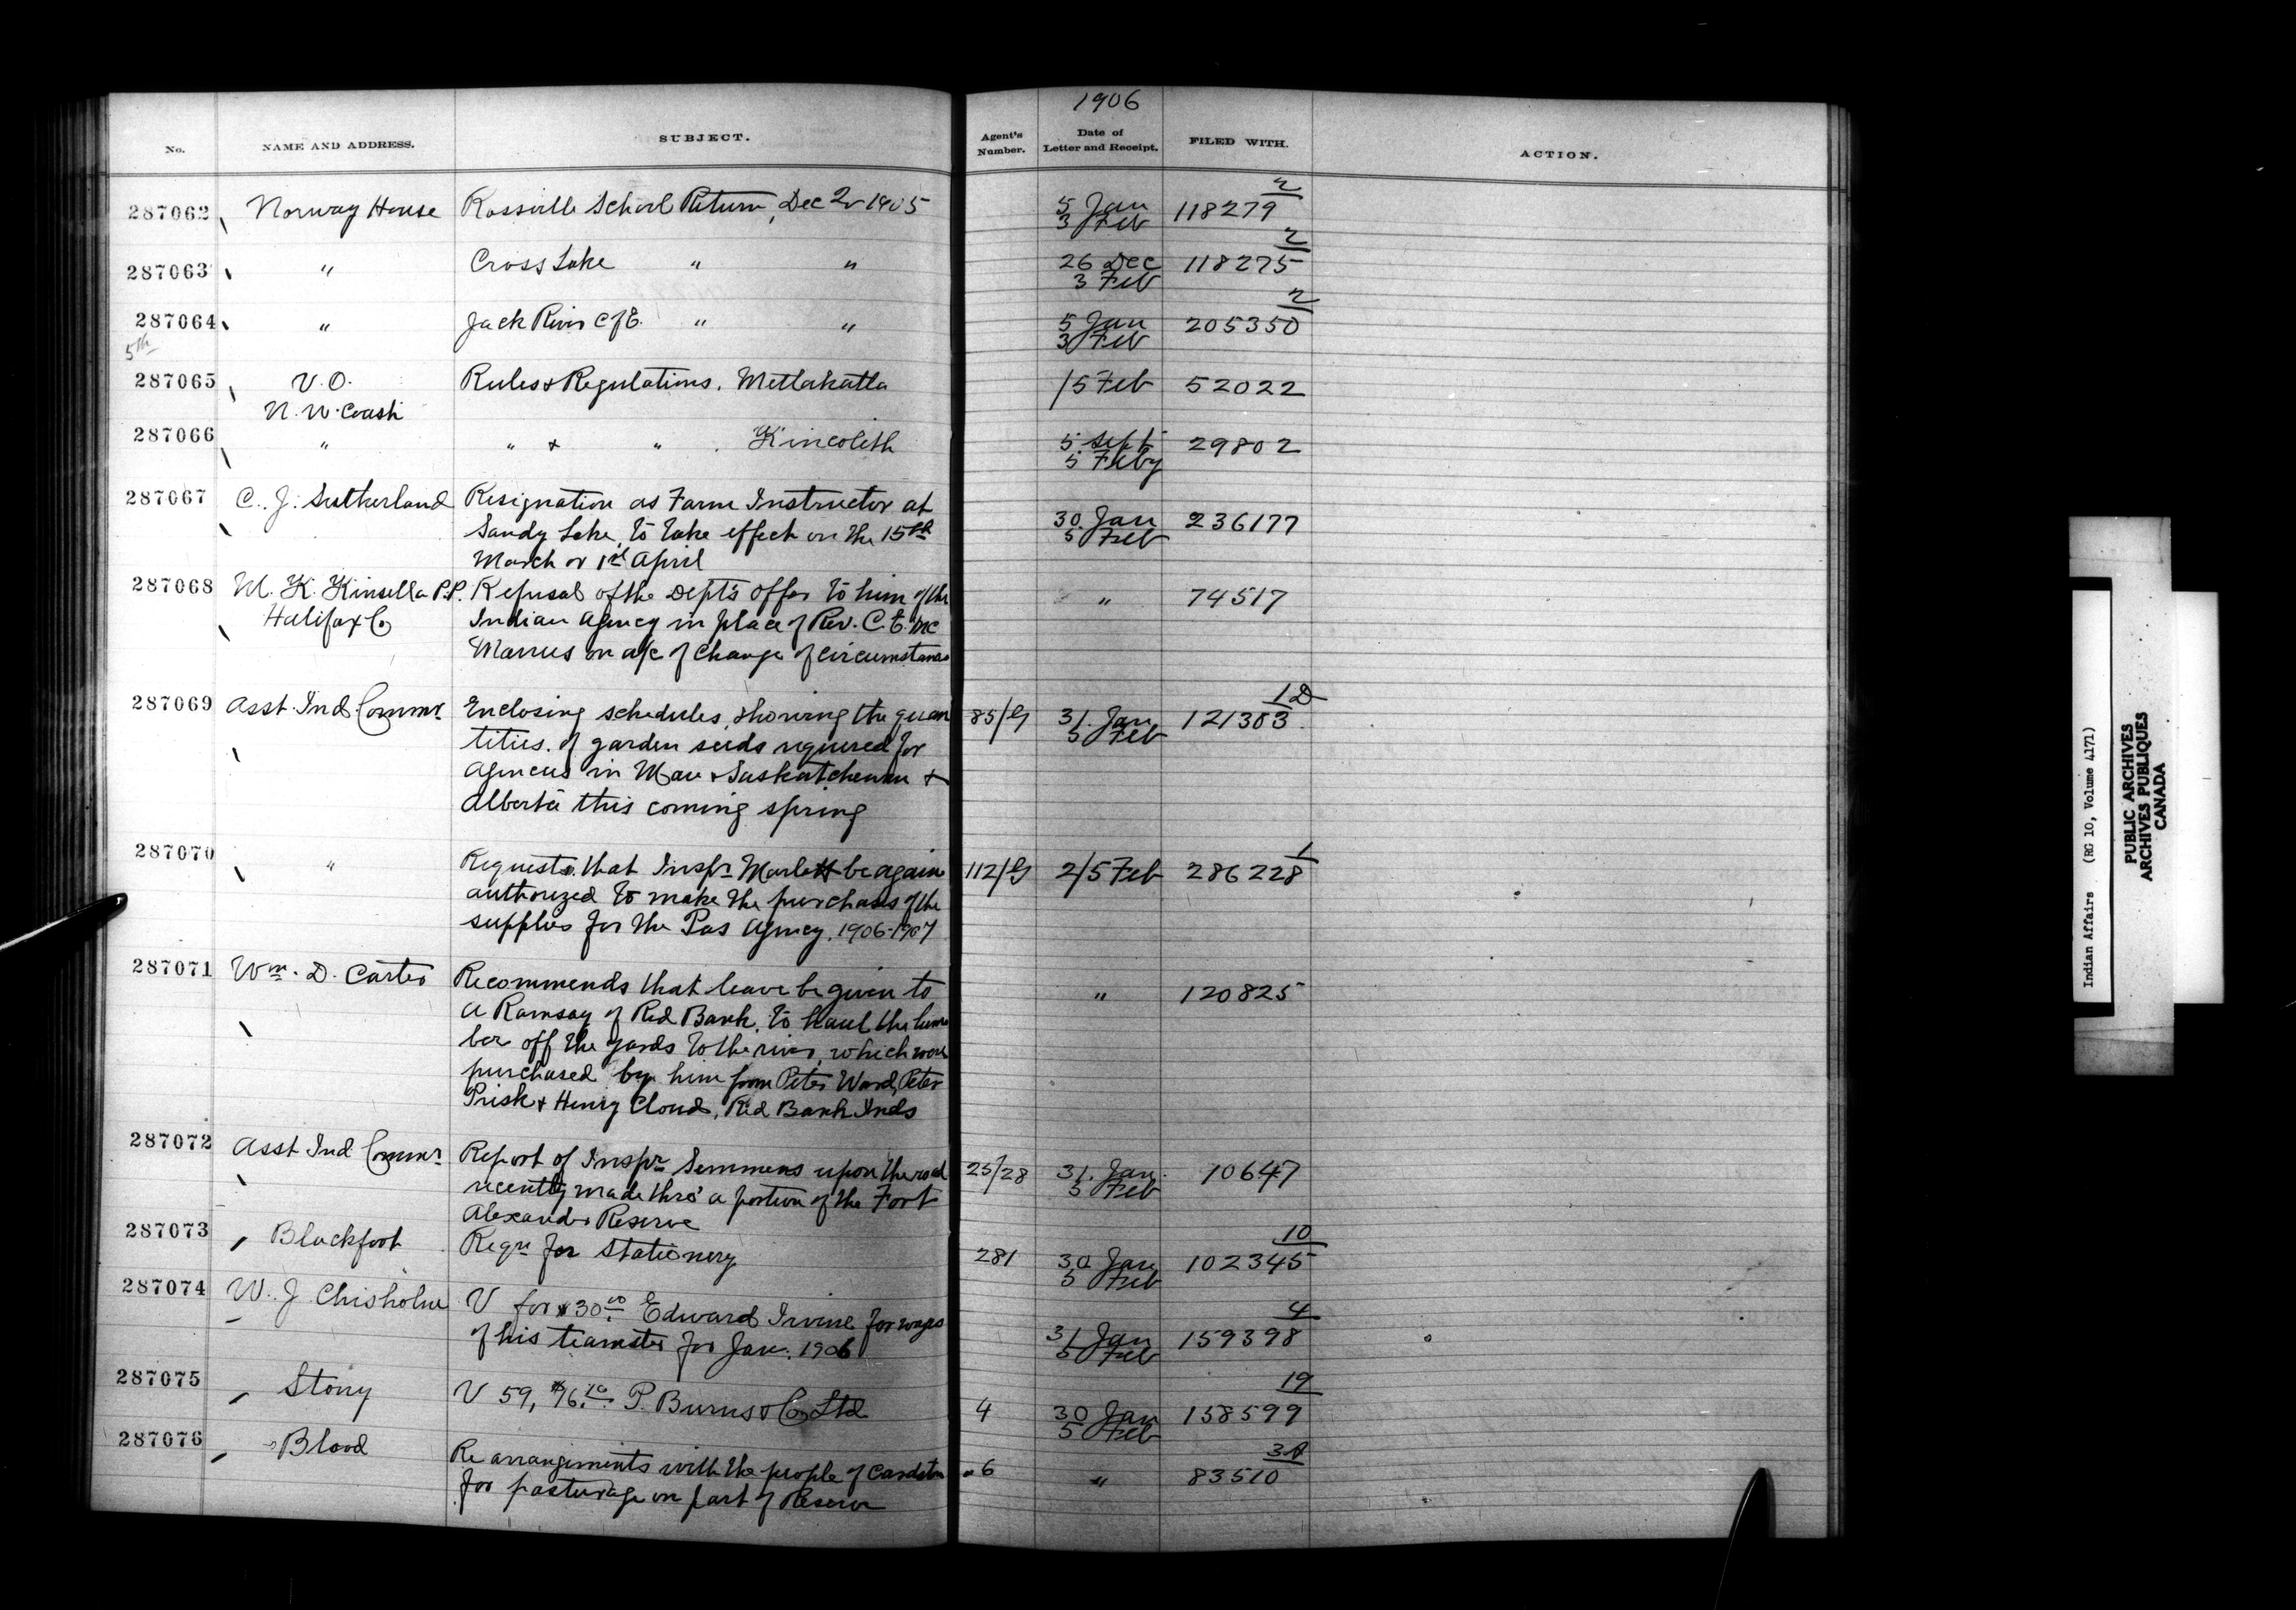 1906
No.
NAME AND ADDRESS.
SUBJECT.
Agent's Number.
Date of Letter and Receipt.
FILED WITH.
ACTION.
287062 Norway House Rossville School Return, Dec 2r 1905 5 Jan 3 Feb 118279 2
287063 " Cross Lake " " 26 Dec 3 Feb 118275 2
287064 " Jack River C of E. " " 5 Jan 3 Feb 205350 2
5th
287065 V. O. Rules & Regulations. Metlakatla 1/5 Feb 52022
N. W. Coast
287066 " " & " . Kincolith 5 Sept 5 Feby 29802
287067 C. J. Sutherland Resignation as Farm Instructor at
Sandy Lake, to take effect on the 15th 30 Jan 5 Feb 236177
March or 1st April
287068 M. K. Kinsella P.P. Refusal of the Dept's offer to him of the " 74517
Halifax Co Indian Agency in place of Rev. C. E. Mc
Manus on a/c of change of circumstances
287069 Asst. Ind. Commr. Enclosing schedules, showing the quan 85/G 31. Jan 5 Feb 121303 1D
tities. of garden seeds required for
Agencies in Man & Saskatchewan &
Alberta this coming spring
287070 " Requests that Inspr Marlatt be again 112/G 2/5 Feb 286228 1
authorized to make the purchases of the
supplies for the Pas Agency. 1906-1907
287071 Wm. D. Carter Recommends that leave be given to
A Ramsay of Red Bank, to haul the lum " 120825
ber off the yards to the river, which were
purchased by him from Peter Ward, Peter
Prisk & Henry Cloud, Red Bank Inds
287072 Asst Ind Commr Report of Inspr Semmens upon the road 25/28 31. Jan. 5 Feb 10647
recently made thro' a portion of the Fort
Alexander Reserve
287073 Blackfoot Reqn for Stationery 281 30 Jan 5 Feb 102345 10
287074 W. J Chisholm V for $30.00 Edward Irvine for wages
of his teamster for Jan. 1906 31 Jan 5 Feb 159398 4
287075 Stony V 59, $76.10 P. Burns & Co Ltd 4 30 Jan 5 Feb 158599 19
287076 Blood Re arrangements with the people of Cardston 6 " 83510
for pasturage on part of Reserve
Indian Affairs (RG 10, Volume 4171)
PUBLIC ARCHIVES
ARCHIVES PUBLIQUES
CANADA